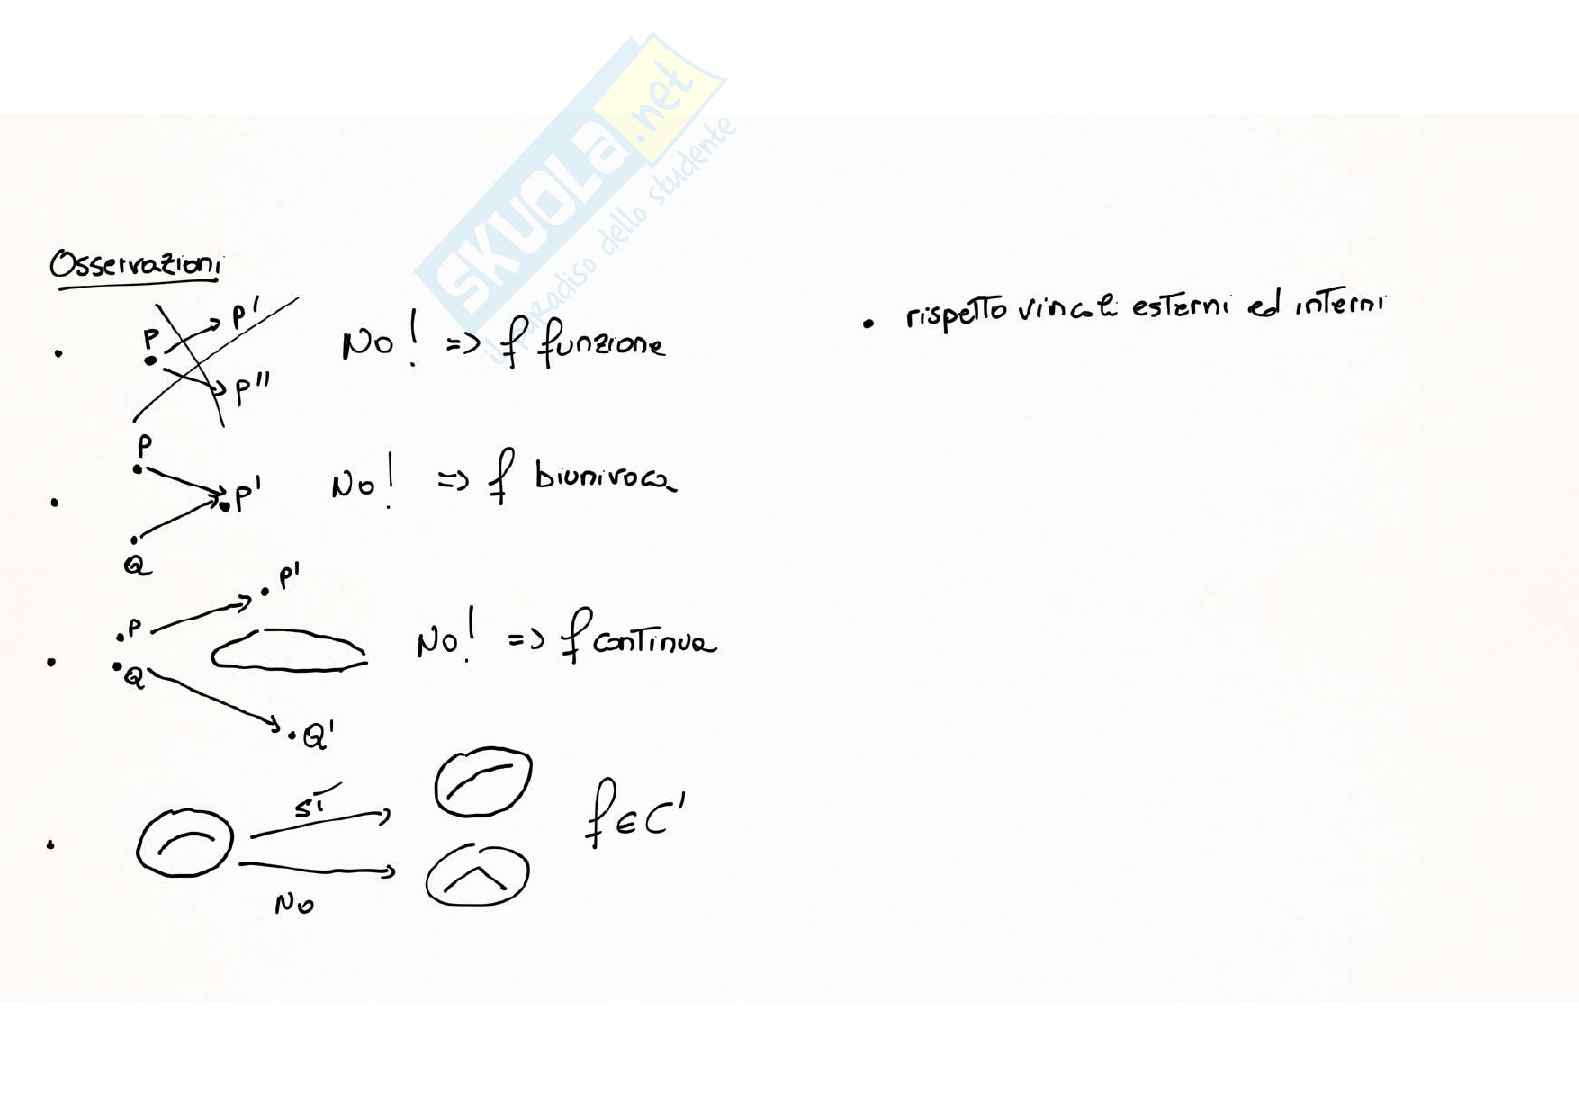 SKUOLA.net
il paradiso dello studente
Osservazioni
• P P' P'' No! => f funzione
• P Q P' No! => f biunivoca
• P Q P' Q' No! => f continua
• sì No f ∈ C'
• rispetto vincoli esterni ed interni